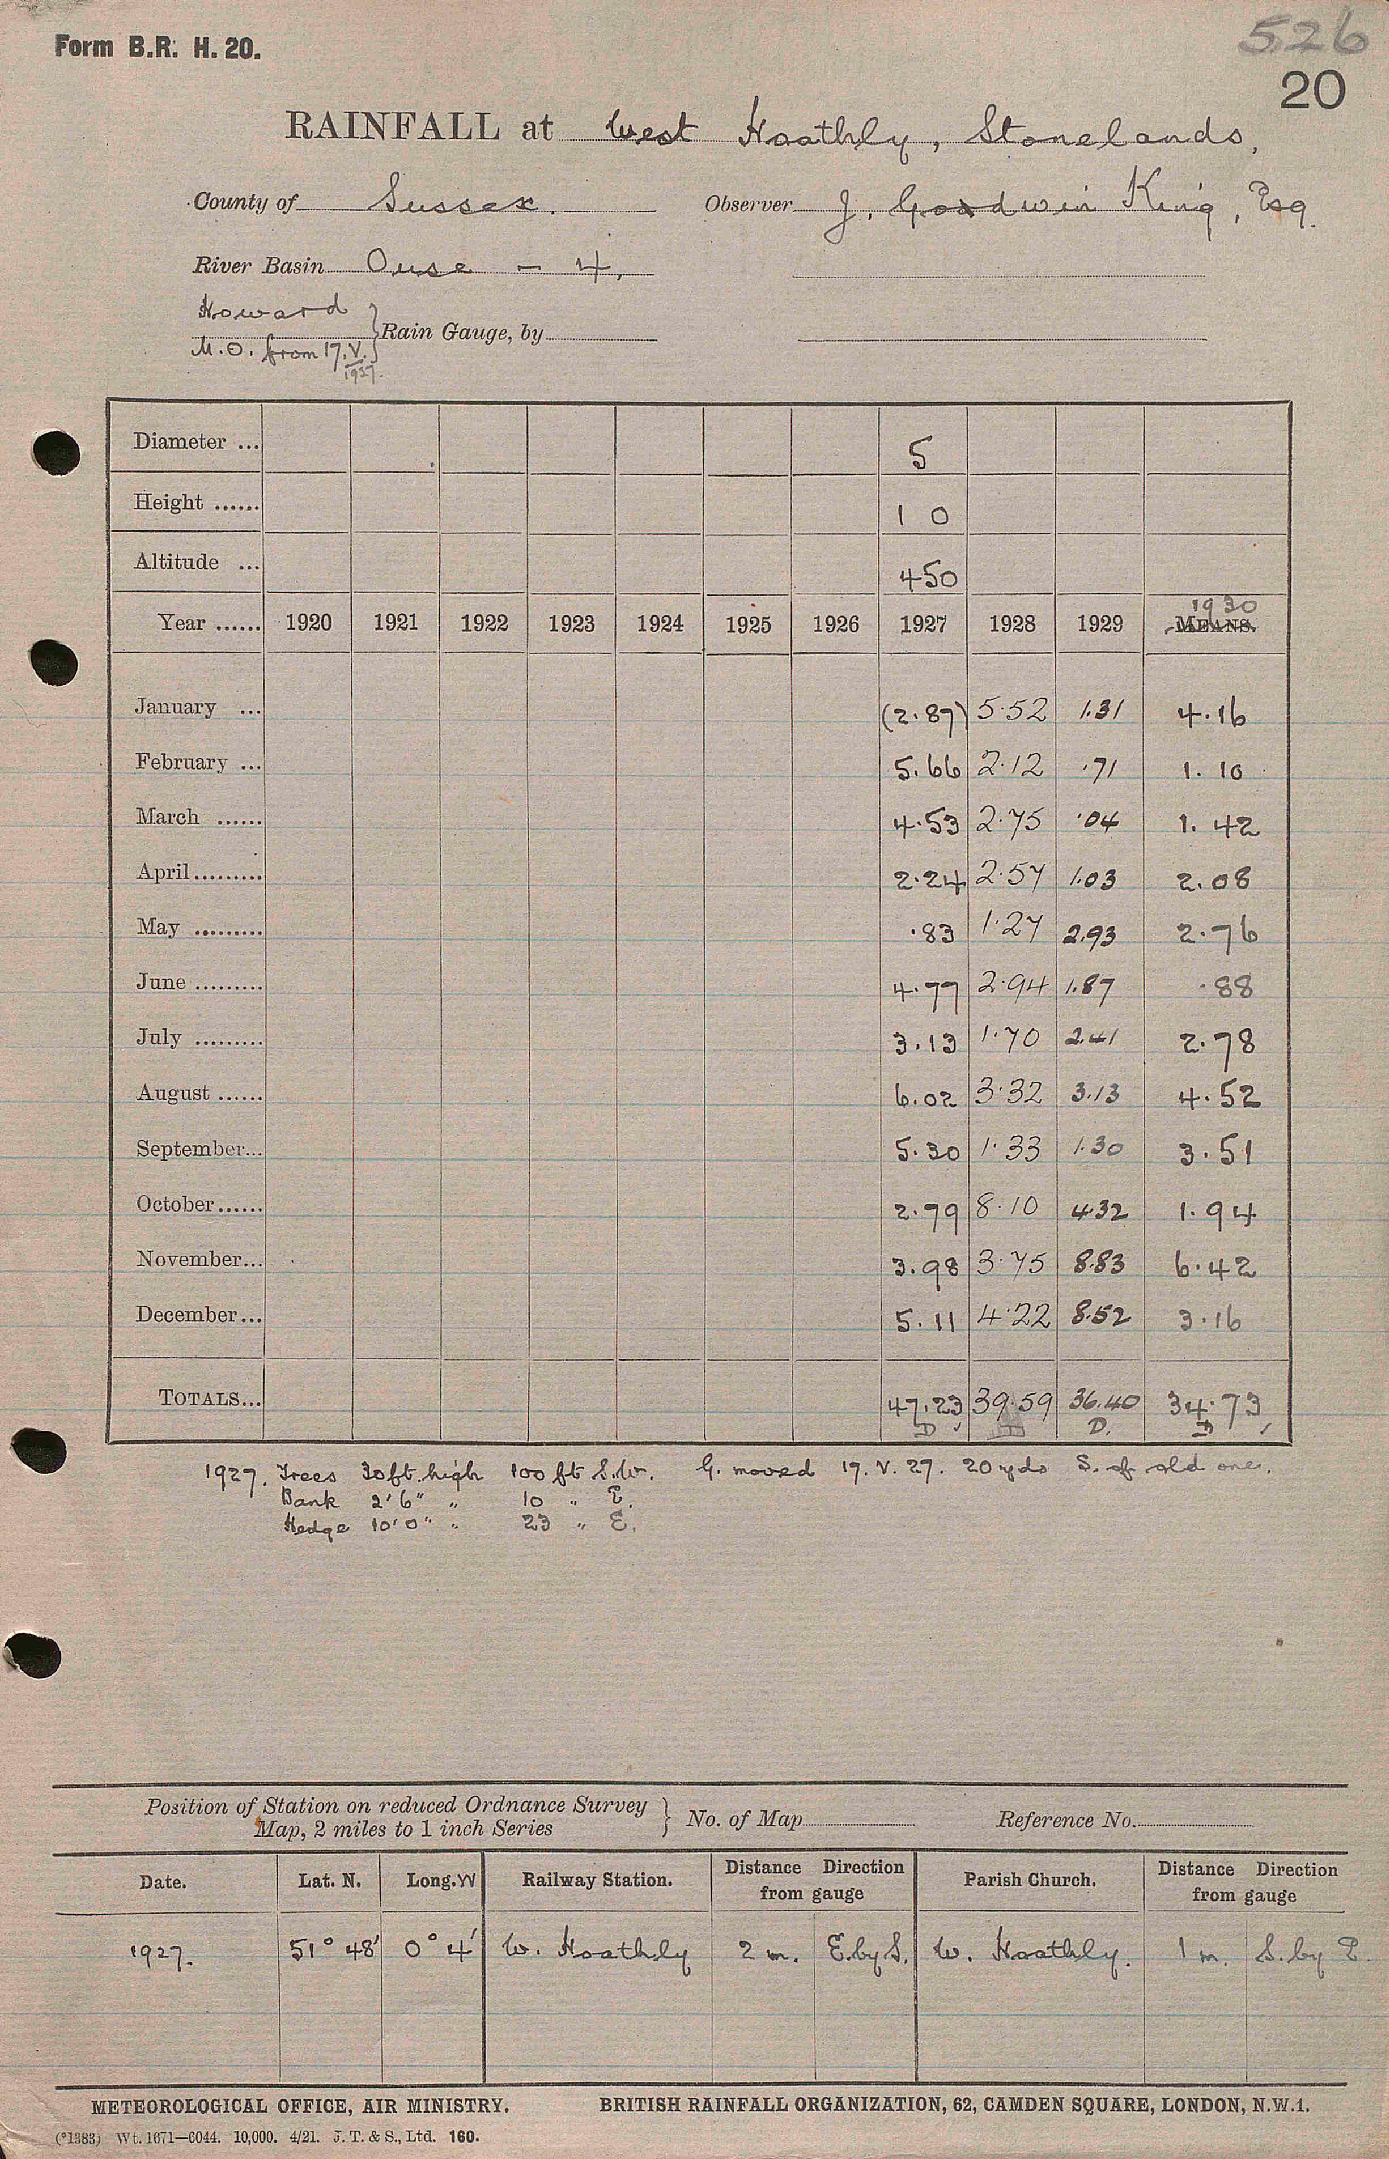 526
Form B.R. H. 20.
20
RAINFALL at West Hoathly, Stonelands,
County of Sussex. Observer J. Goodwin King, Esq.
River Basin Ouse - 4.
Howard
M.O. from 17.V.1927. } Rain Gauge, by
Diameter ... 5
Height ...... 1 0
Altitude ... 450
1930
Year ...... 1920 1921 1922 1923 1924 1925 1926 1927 1928 1929 MEANS.
January ... (2.87) 5.52 1.31 4.16
February ... 5.66 2.12 .71 1.10
March ...... 4.53 2.75 .04 1.42
April ......... 2.24 2.57 1.03 2.08
May ......... .83 1.27 2.93 2.76
June ......... 4.77 2.94 1.87 .88
July ......... 3.13 1.70 2.41 2.78
August ...... 6.02 3.32 3.13 4.52
September ... 5.30 1.33 1.30 3.51
October ...... 2.79 8.10 4.32 1.94
November ... 3.98 3.75 8.83 6.42
December ... 5.11 4.22 8.52 3.16
TOTALS ... 47.23 39.59 36.40 34.73
D D D. D
1927. Trees 30ft. high 100 ft S.W. G. moved 17.V.27. 20 yds S. of old one.
Bank 2'6" " 10 " E.
Hedge 10'0" " 23 " E.
Position of Station on reduced Ordnance Survey
Map, 2 miles to 1 inch Series } No. of Map Reference No.
Date. Lat. N. Long. W Railway Station. Distance Direction from gauge Parish Church. Distance Direction from gauge
1927. 51° 48' 0° 4' W. Hoathly 2 m. E. by S. W. Hoathly. 1 m. S. by E
METEOROLOGICAL OFFICE, AIR MINISTRY. BRITISH RAINFALL ORGANIZATION, 62, CAMDEN SQUARE, LONDON, N.W.1.
(*1383) Wt. 1671—6044. 10,000. 4/21. J. T. & S., Ltd. 160.